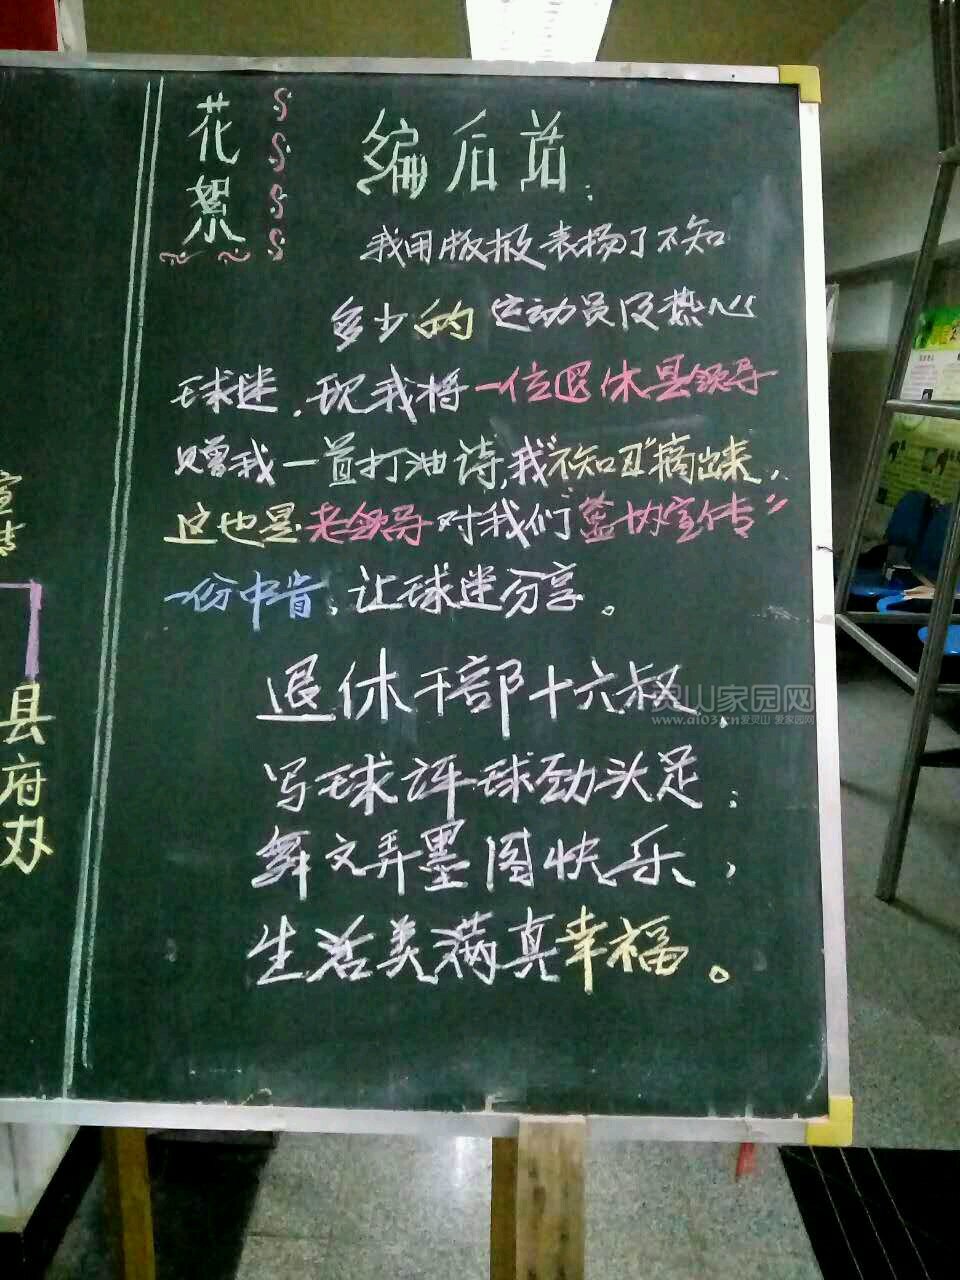 花絮
编后话:
我用版报表扬了不知
多少的运动员及热心
球迷.现我将一位退休县领导
赠我一首打油诗,我"不知丑"摘出来,
这也是老领导对我们"篮协宣传"
一份中肯,让球迷分享。
退休干部十六叔,
写球评球劲头足;
舞文弄墨图快乐,
生活美满真幸福。
宣传
县府办
灵山家园网
www.a103.cn爱灵山 爱家园网